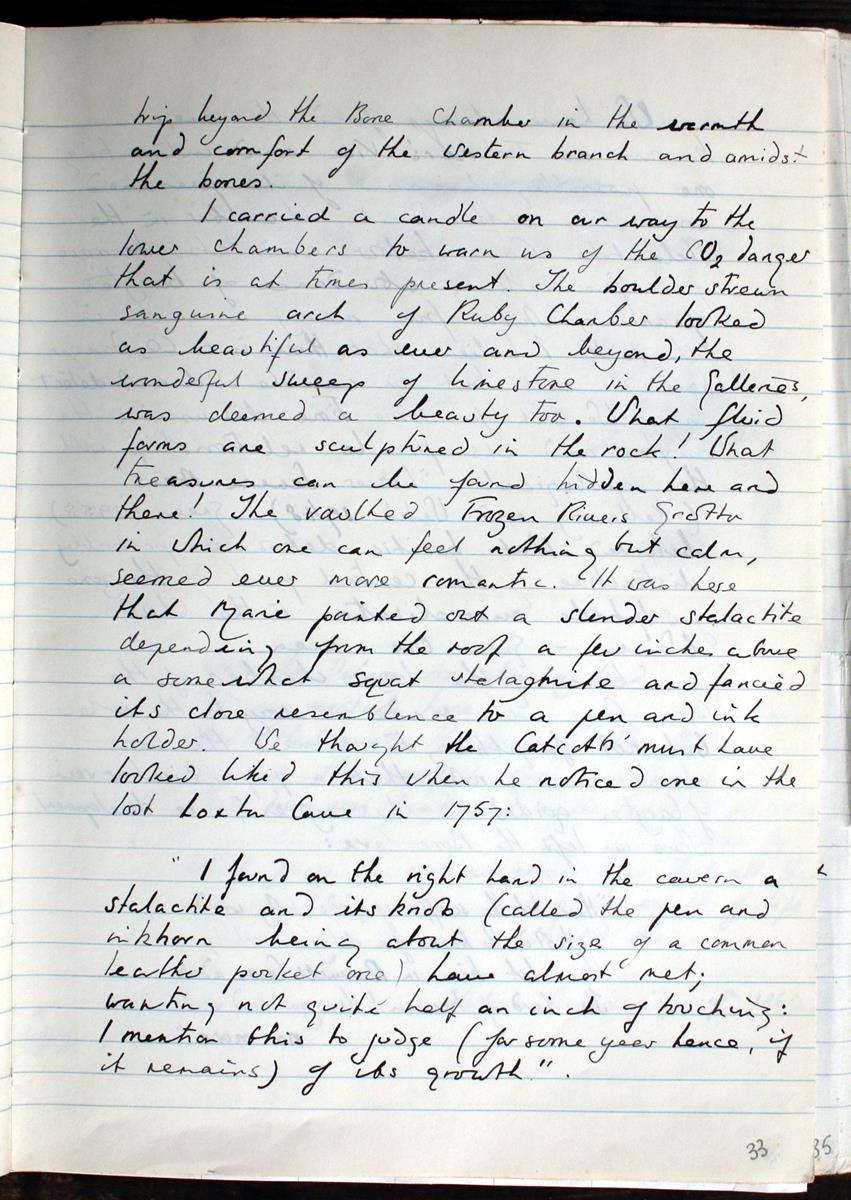 trip beyond the Bone Chamber in the warmth
and comfort of the Western branch and amidst
the bones.
I carried a candle on our way to the
lower chambers to warn us of the CO2 danger
that is at times present. The boulder strewn
sanguine arch of Ruby Chamber looked
as beautiful as ever and beyond, the
wonderful sweep of limestone in the Galleries,
was deemed a beauty too. What fluid
forms are sculptured in the rock! What
treasures can be found hidden here and
there! The vaulted Frozen Rivers Grotto
in which one can feel nothing but calm,
seemed ever more romantic. It was here
that Marie pointed out a slender stalactite
depending from the roof a few inches above
a somewhat squat stalagmite and fancied
its close resemblence to a pen and ink
holder. We thought the Catcotts' must have
looked like'd this when he noticed one in the
lost Loxton Cave in 1757:
" I found on the right hand in the cavern a
stalactite and its knob (called the pen and
inkhorn being about the size of a common
leather pocket one) have almost met;
wanting not quite half an inch of touching:
I mention this to judge (for some year hence, if
it remains) of its growth".
33
35